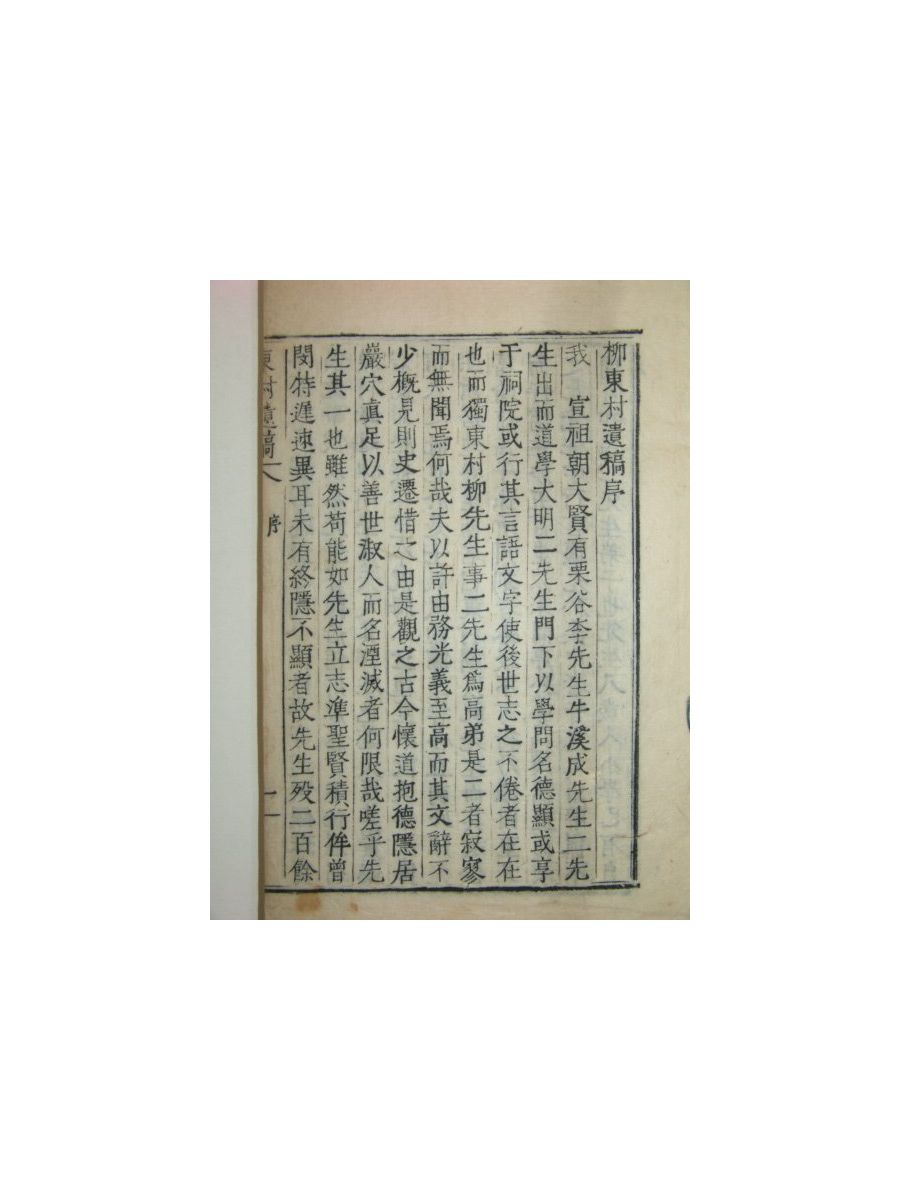 柳東村遺稿序
我 宣祖朝大賢有栗谷李先生牛溪成先生二先
生出而道學大明二先生門下以學問名德顯或享
于祠院或行其言語文字使後世志之不倦者在在
也而獨東村柳先生事二先生爲高弟是二者寂寥
而無聞焉何哉夫以許由務光義至高而其文辭不
少槪見則史遷惜之由是觀之古今懷道抱德隱居
巖穴眞足以善世淑人而名湮滅者何限哉嗟乎先
生其一也雖然苟能如先生立志準聖賢積行侔曾
閔特遲速異耳未有終隱不顯者故先生歿二百餘
東村遺稿 序 一